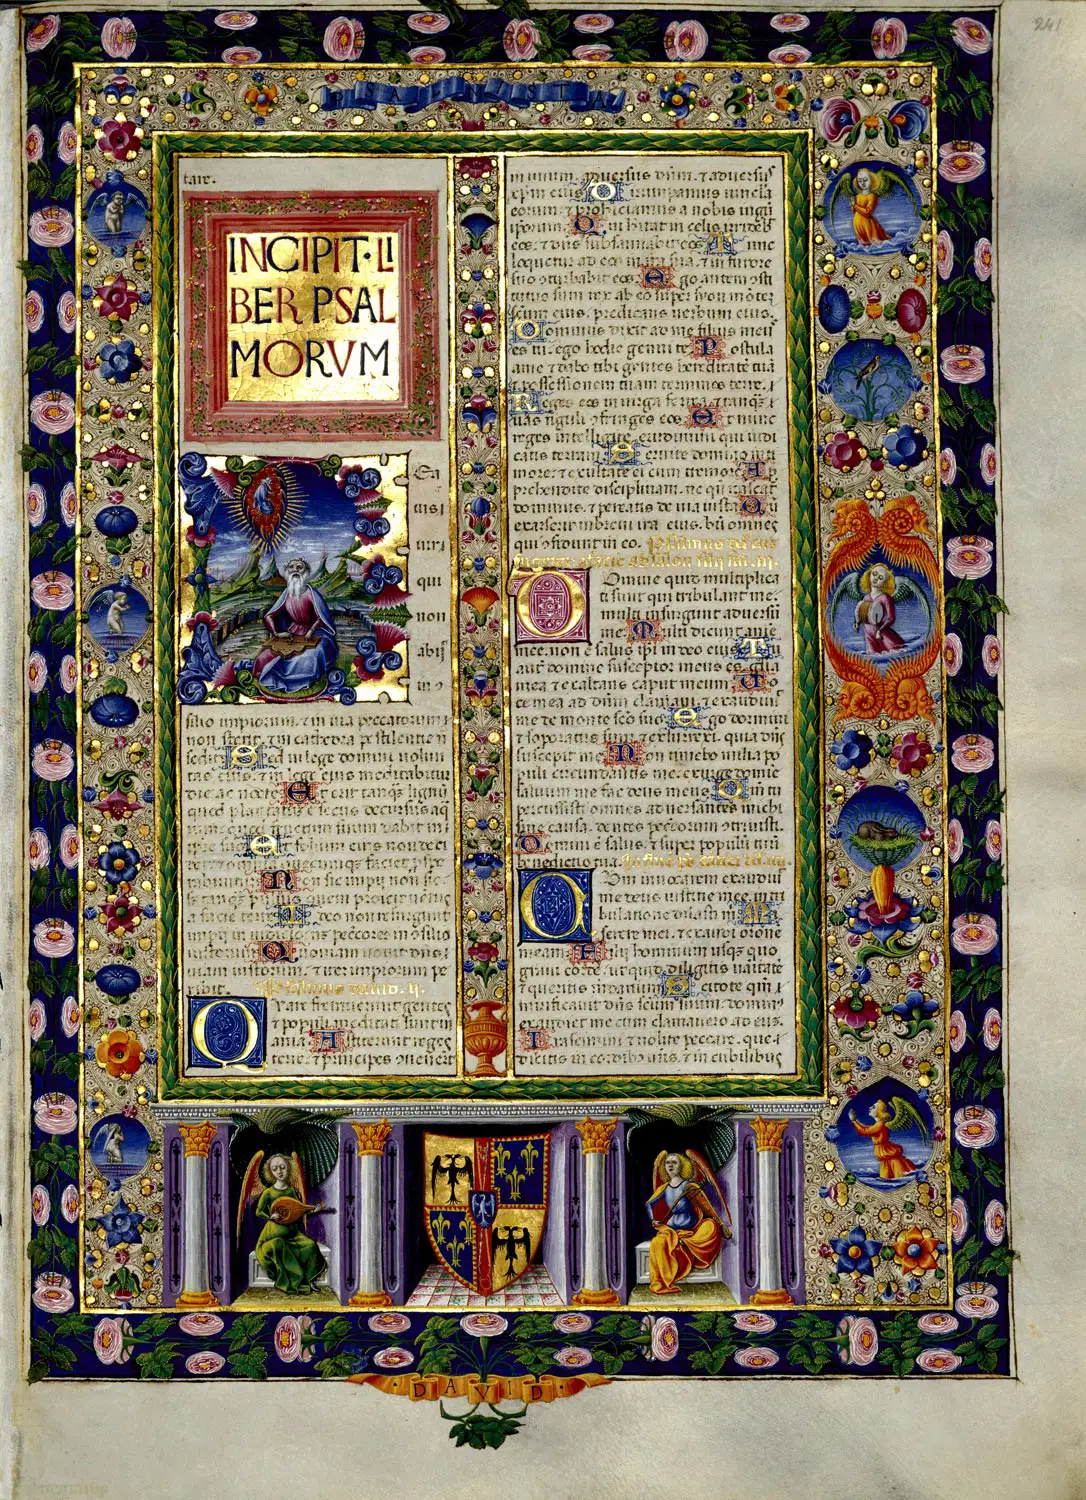 241
PSALMISTA
tare.
INCIPIT·LI
BER PSAL
MORVM
Bea
tus
uir
qui
non
abiit
in
silio impiorum. et in uia peccatorum
non stetit. et in cathedra pestilentie
sedit Sed in lege domini uolun
tas eius. et in lege eius meditabitur
die ac nocte Et erit tanq lignum
quod plantatum e secus decursus aq
in
et folium eius non de
Non sic impii non sic.
a facie terre Ideo non resurgunt
impii in iudicio
iustorum Quoniam nouit dominus
uiam iustorum. et iter impiorum pe
ribit. Psalmus dauid. II.
Quare fremuerunt gentes
et populi meditati sunt in
ania. Astiterunt reges
terre. et principes
in unum. aduersus dnm. et aduersus
xpm eius Dirumpamus uincla
eorum et prohiciamus a nobis iugum
ipsorum. Qui habitat in celis
eos. et dns subsannabit eos Tunc
loquetur ad eos in ira sua. et in furore
suo conturbabit eos. Ego autem
tutus sum rex ab eo super syon montem
scum eius. predicans uerbum eius.
Dominus dixit ad me filius meus
es tu. ego hodie genui te Postula
a me et dabo tibi gentes hereditate tua
et possessionem tuam terminos terre.
Reges eos in uirga ferrea et tanq
uas figuli confringes eos Et nunc
reges intelligite. erudimini qui iudi
catis terram Seruite domino in ti
more. et exultate ei cum tremore Ap
prehendite disciplinam. ne qn irascat
dominus. et pereatis de uia iusta Cum
exarserit in breui ira eius. bti omnes
qui confidunt in eo. Psalmus
Domine quid multiplica
ti sunt qui tribulant me.
multi insurgunt aduersum
me Multi dicunt anime
mee. non e salus ipi in deo eius Tu
aut domine susceptor meus es. glia
mea et exaltans caput meum Uo
ce mea ad dnm clamaui. et exaudiuit
me de monte sco suo Ego dormiui
et soporatus sum. et exurrexi. quia dns
suscepit me Non timebo milia po
puli circundantis me. exurge domine
saluum me fac deus meus Qm tu
percussisti omnes aduersantes michi
sine causa. dentes peccatorum contriuisti.
Domini e salus. et super populum tuum
benedictio tua.
Cum inuocarem exaudiuit
me deus iustitie mee. in tri
bulatione dilatasti m Mi
serere mei. et exaudi orone
meam Filii hominum usq quo
graui corde. ut quid diligitis uanitate
et queritis mendacium Scitote qm
mirificauit dns scum suum. dominus
exaudiet me cum clamauero ad eum.
Irascimini et nolite peccare. que
dicitis in cordibus uris. et in cubilibus
DAVID